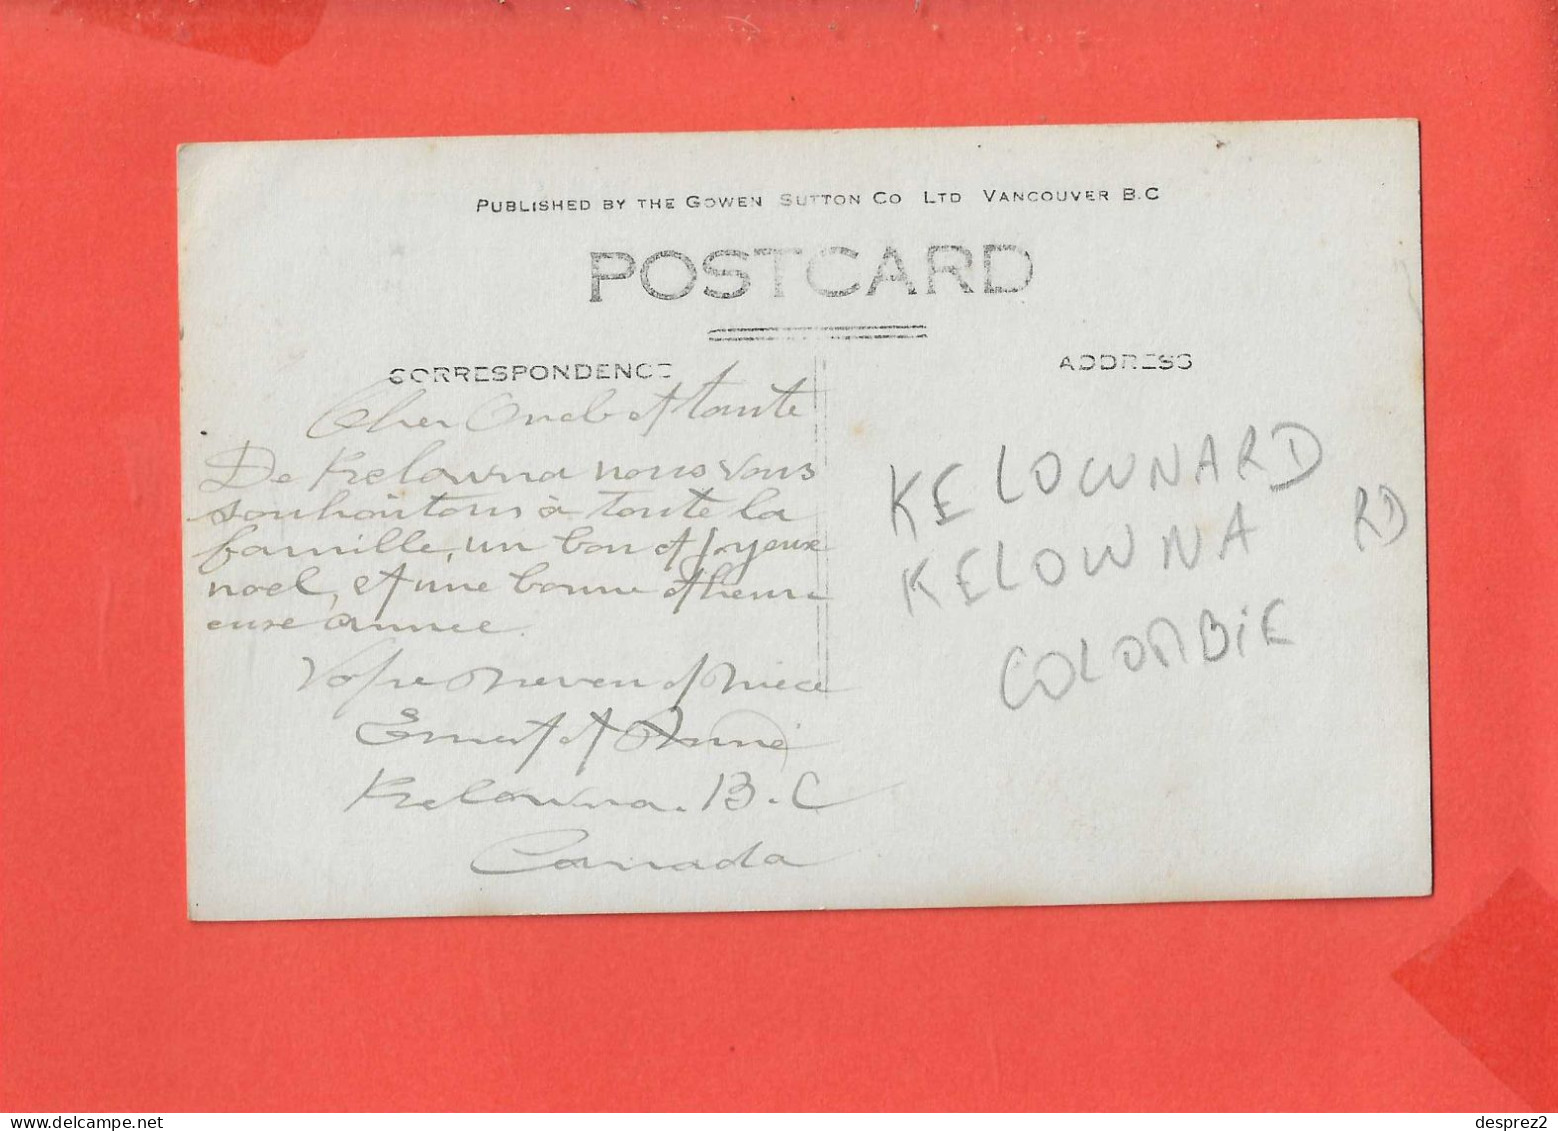 PUBLISHED BY THE GOWEN SUTTON CO LTD VANCOUVER B.C
POSTCARD
CORRESPONDENCE
ADDRESS
Cher Oncle et tante
De Kelowna nous vous
souhoitons à toute la
famille, un bon et Joyeux
noel, et une bonne et heur-
euse année.
Votre neveu et niece
Ernest et Anna
Kelowna. B.C
Canada
KELOWNARD
KELOWNA RD
COLOMBIE
desprez2